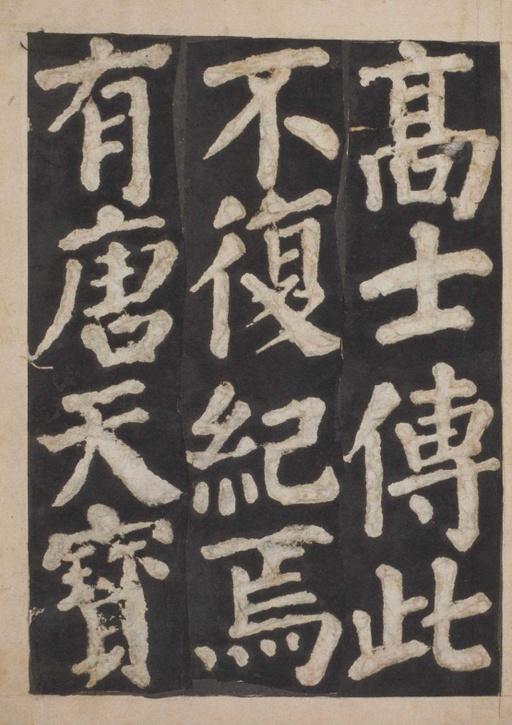 髙士傳此
不復紀焉
有唐天寶